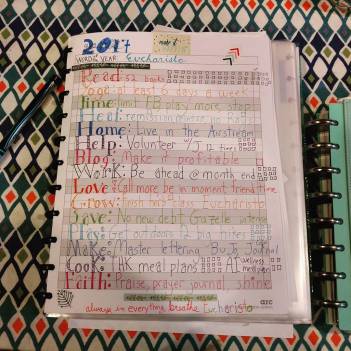 2017
WORD of the YEAR: Eucharisteo
Read: 52 books
Yoga: at least 6 days a week
Time: limit FB play more, stop
Heal: remission
Home: Live in the Airstream
Help: Volunteer 12 times
Blog: Make it profitable
Work: Be ahead @ month end
Love: Call more be in moment friend time
Grow: finish herb class Eucharisteo
Save: No new debt Gazelle intense
Play: Get outdoors
Make: Master lettering Journal
Cook: THK meal plans AI wellness
Faith: Praise, prayer journal, shine
arc
always in everything breathe Eucharisteo